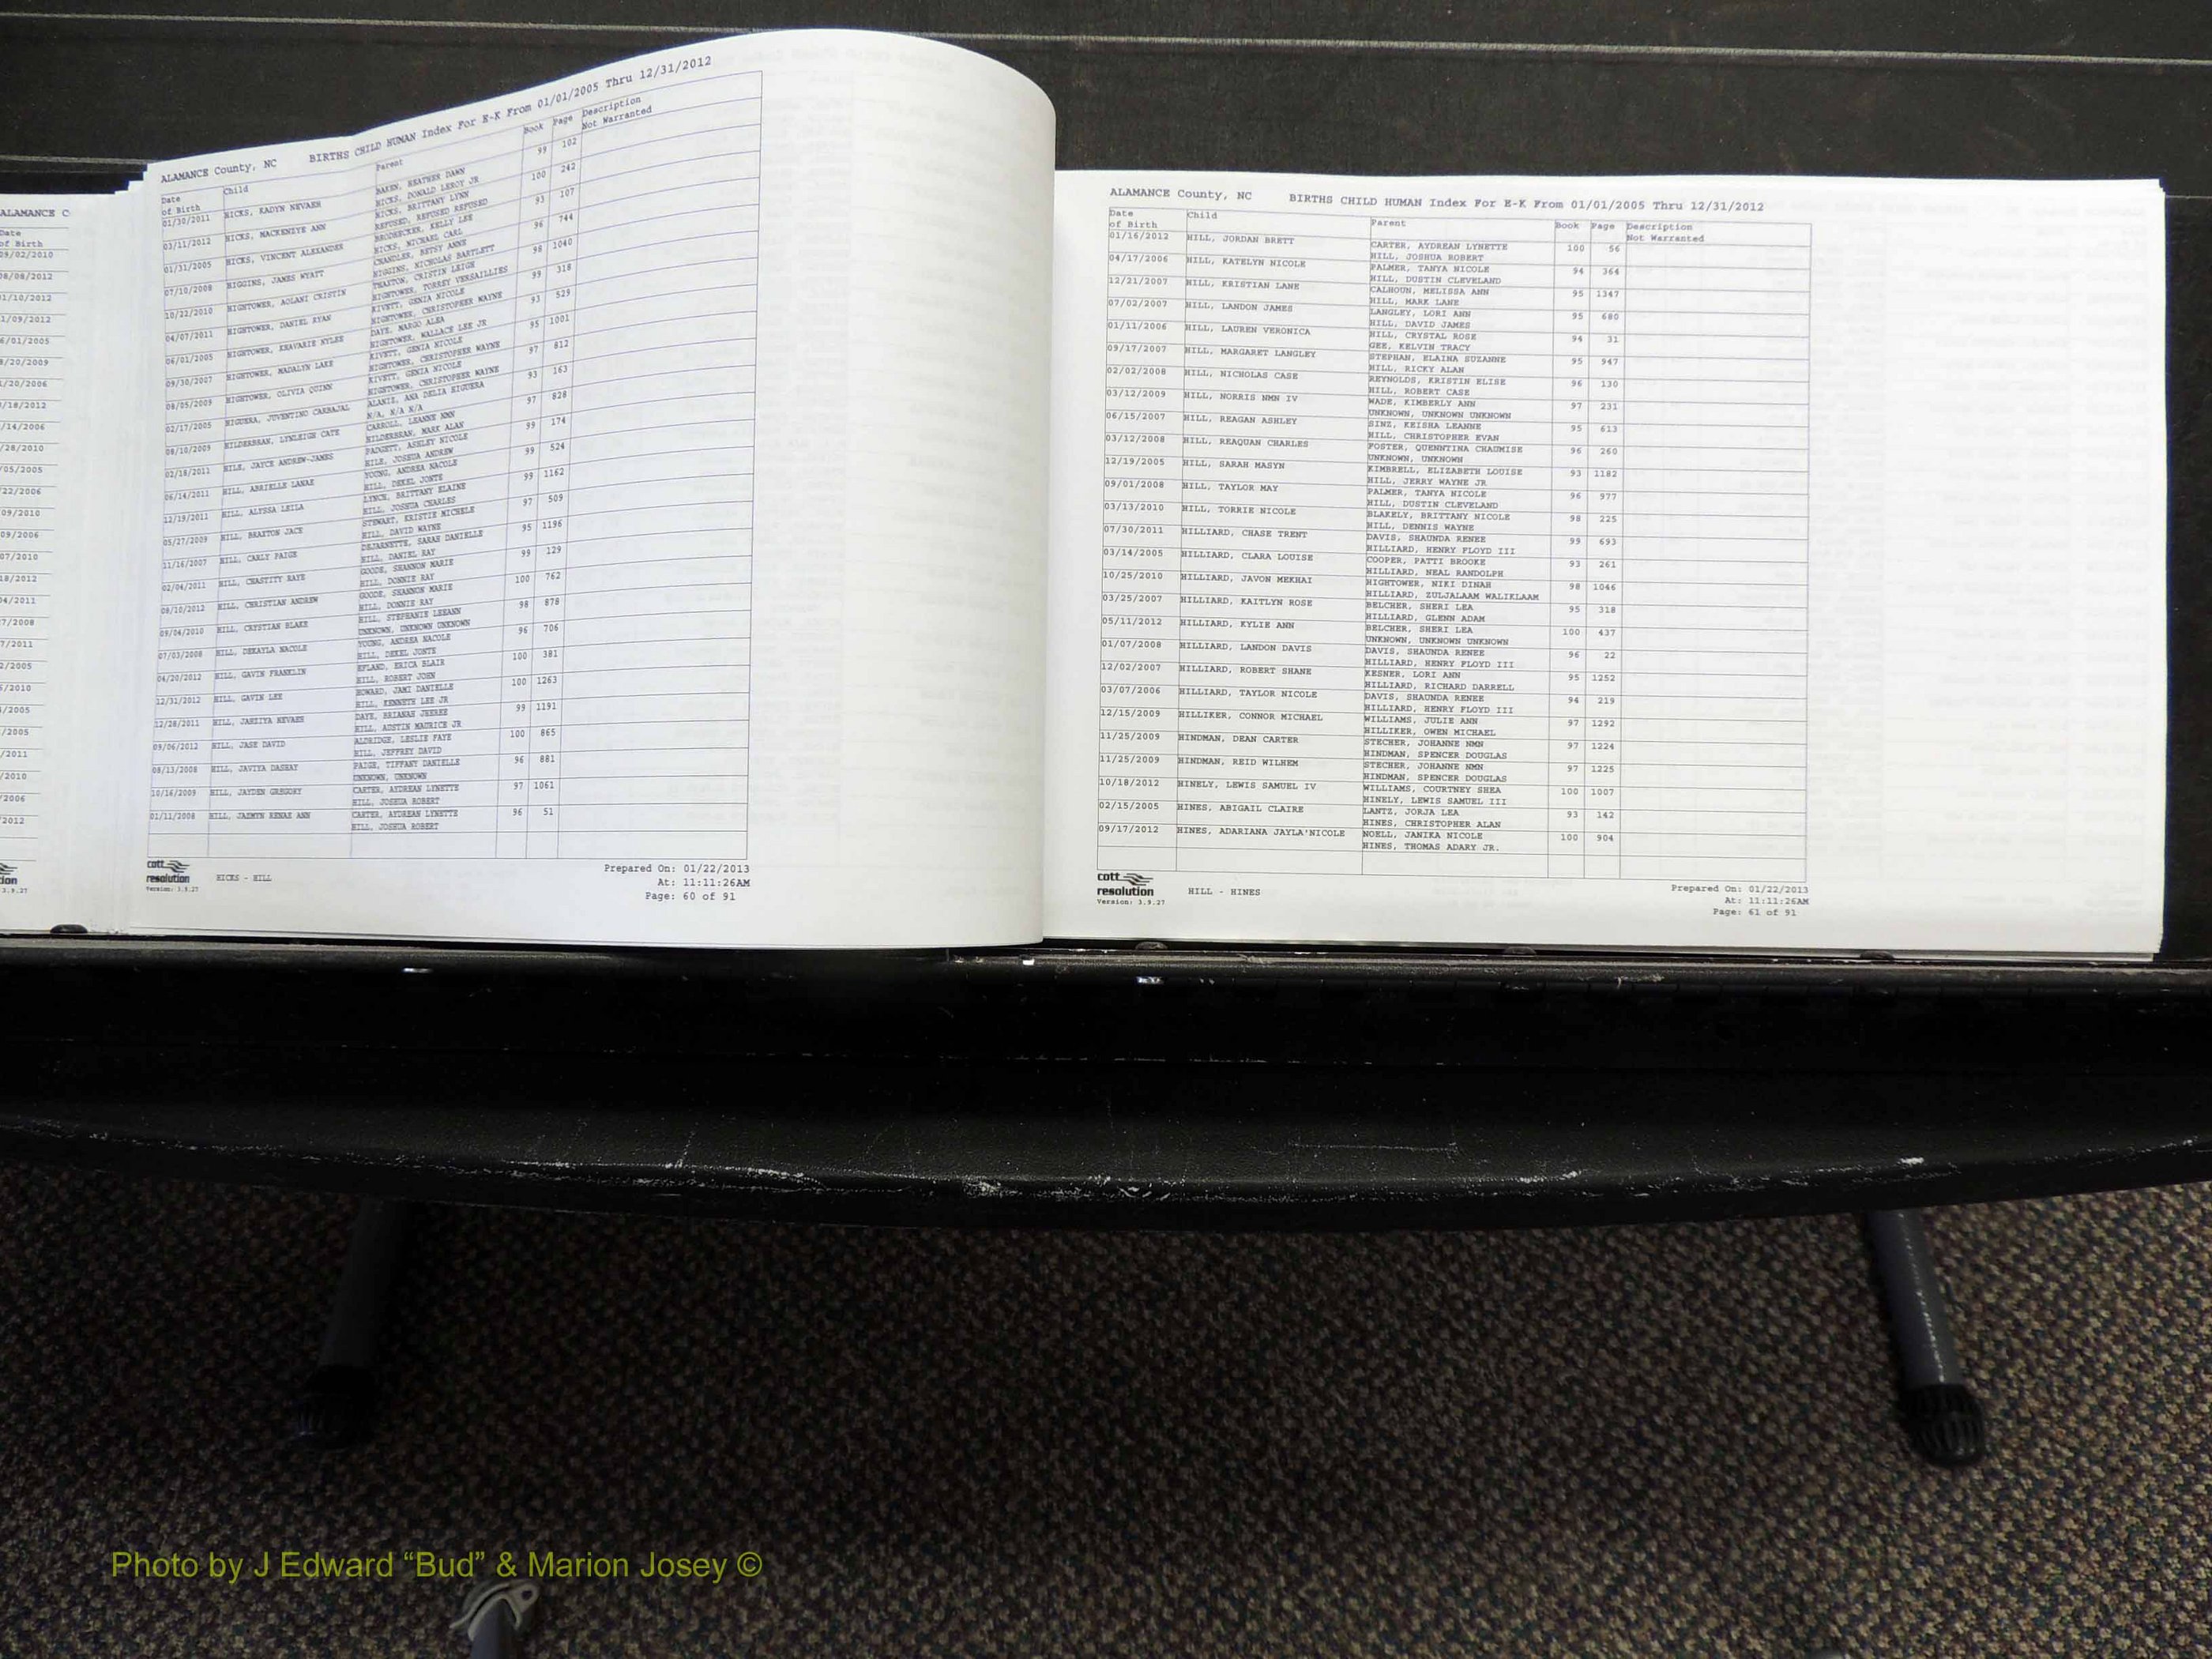 ALAMANCE C
Date
of Birth
09/02/2010
08/08/2012
ALAMANCE County, NC BIRTHS CHILD HUMAN Index For E-K From 01/01/2005 Thru 12/31/2012
Date
of Birth Child Parent Book Page Description
Not Warranted
01/30/2011 HICKS, KADYN NEVAEH BAKER, HEATHER DAWN 99 102
HICKS, DONALD LEROY JR
03/11/2012 HICKS, MACKENZYE ANN HICKS, BRITTANY LYNN 100 242
REFUSED, REFUSED REFUSED
01/31/2005 HICKS, VINCENT ALEXANDER BRODBECKER, KELLY LEE 93 107
HICKS, MICHAEL CARL
07/10/2008 HIGGINS, JAMES WYATT CHANDLER, BETSY ANNE 96 744
HIGGINS, NICHOLAS BARTLETT
10/22/2010 HIGHTOWER, AOLANI CRISTIN THAXTON, CRISTIN LEIGH 98 1040
HIGHTOWER, TORREY VERSAILLIES
04/07/2011 HIGHTOWER, DANIEL RYAN RIVETT, GENIA NICOLE 99 318
HIGHTOWER, CHRISTOPHER WAYNE
06/01/2005 HIGHTOWER, KHAVARIE KYLEE DAYE, MARGO ALEA 93 529
HIGHTOWER, WALLACE LEE JR
09/30/2007 HIGHTOWER, MADALYN LAKE RIVETT, GENIA NICOLE 95 1001
HIGHTOWER, CHRISTOPHER WAYNE
08/05/2009 HIGHTOWER, OLIVIA QUINN RIVETT, GENIA NICOLE 97 812
HIGHTOWER, CHRISTOPHER WAYNE
02/17/2005 HIGUERA, JUVENTINO CARBAJAL ALANIZ, ANA DELIA HIGUERA 93 163
N/A, N/A N/A
08/10/2009 HILDERBRAN, LYNLEIGH CATE CARROLL, LEANNE NMN 97 828
HILDERBRAN, MARK ALAN
02/18/2011 HILE, JAYCE ANDREW-JAMES PADGETT, ASHLEY NICOLE 99 174
HILE, JOSHUA ANDREW
06/14/2011 HILL, ABRIELLE LANAE YOUNG, ANDREA NACOLE 99 524
HILL, DEKEL JONTE
12/19/2011 HILL, ALYSSA LEILA LYNCH, BRITTANY ELAINE 99 1162
HILL, JOSHUA CHARLES
05/27/2009 HILL, BRAXTON JACE STEWART, KRISTIE MICHELE 97 509
HILL, DAVID WAYNE
11/16/2007 HILL, CARLY PAIGE DEJARNETTE, SARAH DANIELLE 95 1196
HILL, DANIEL RAY
02/04/2011 HILL, CHASTITY RAYE GOODE, SHANNON MARIE 99 129
HILL, DONNIE RAY
08/10/2012 HILL, CHRISTIAN ANDREW GOODE, SHANNON MARIE 100 762
HILL, DONNIE RAY
09/04/2010 HILL, CRYSTIAN BLAKE HILL, STEPHANIE LEEANN 98 878
UNKNOWN, UNKNOWN UNKNOWN
07/03/2008 HILL, DEKAYLA NACOLE YOUNG, ANDREA NACOLE 96 706
HILL, DEKEL JONTE
04/20/2012 HILL, GAVIN FRANKLIN EFLAND, ERICA BLAIR 100 381
HILL, ROBERT JOHN
12/31/2012 HILL, GAVIN LEE HOWARD, JAMI DANIELLE 100 1263
HILL, KENNETH LEE JR
12/28/2011 HILL, JANZIYA NEVAEH DAYE, BRIANAH JHEREE 99 1191
HILL, AUSTIN MAURICE JR
09/06/2012 HILL, JASE DAVID ALDRIDGE, LESLIE FAYE 100 865
HILL, JEFFREY DAVID
08/13/2008 HILL, JAVIYA DASHAY PAIGE, TIFFANY DANIELLE 96 881
UNKNOWN, UNKNOWN
10/16/2009 HILL, JAYDEN GREGORY CARTER, AYDREAN LYNETTE 97 1061
HILL, JOSHUA ROBERT
01/11/2008 HILL, JAZMYN RENAE ANN CARTER, AYDREAN LYNETTE 96 51
HILL, JOSHUA ROBERT
cott
resolution
Version: 3.9.27
HICKS - HILL
Prepared On: 01/22/2013
At: 11:11:26AM
Page: 60 of 91
ALAMANCE County, NC BIRTHS CHILD HUMAN Index For E-K From 01/01/2005 Thru 12/31/2012
Date
of Birth Child Parent Book Page Description
Not Warranted
01/16/2012 HILL, JORDAN BRETT CARTER, AYDREAN LYNETTE 100 56
HILL, JOSHUA ROBERT
04/17/2006 HILL, KATELYN NICOLE PALMER, TANYA NICOLE 94 364
HILL, DUSTIN CLEVELAND
12/21/2007 HILL, KRISTIAN LANE CALHOUN, MELISSA ANN 95 1347
HILL, MARK LANE
07/02/2007 HILL, LANDON JAMES LANGLEY, LORI ANN 95 680
HILL, DAVID JAMES
01/11/2006 HILL, LAUREN VERONICA HILL, CRYSTAL ROSE 94 31
GEE, KELVIN TRACY
09/17/2007 HILL, MARGARET LANGLEY STEPHAN, ELAINA SUZANNE 95 947
HILL, RICKY ALAN
02/02/2008 HILL, NICHOLAS CASE REYNOLDS, KRISTIN ELISE 96 130
HILL, ROBERT CASE
03/12/2009 HILL, NORRIS NMN IV WADE, KIMBERLY ANN 97 231
UNKNOWN, UNKNOWN UNKNOWN
06/15/2007 HILL, REAGAN ASHLEY SINZ, KEISHA LEANNE 95 613
HILL, CHRISTOPHER EVAN
03/12/2008 HILL, REAQUAN CHARLES FOSTER, QUENNTINA CHADMISE 96 260
UNKNOWN, UNKNOWN
12/19/2005 HILL, SARAH MASYN KIMBRELL, ELIZABETH LOUISE 93 1182
HILL, JERRY WAYNE JR
09/01/2008 HILL, TAYLOR MAY PALMER, TANYA NICOLE 96 977
HILL, DUSTIN CLEVELAND
03/13/2010 HILL, TORRIE NICOLE BLAKELY, BRITTANY NICOLE 98 225
HILL, DENNIS WAYNE
07/30/2011 HILLIARD, CHASE TRENT DAVIS, SHAUNDA RENEE 99 693
HILLIARD, HENRY FLOYD III
03/14/2005 HILLIARD, CLARA LOUISE COOPER, PATTI BROOKE 93 261
HILLIARD, NEAL RANDOLPH
10/25/2010 HILLIARD, JAVON MEKHAI HIGHTOWER, NIKI DINAH 98 1046
HILLIARD, ZULJALAAM WALIKLAAM
03/25/2007 HILLIARD, KAITLYN ROSE BELCHER, SHERI LEA 95 318
HILLIARD, GLENN ADAM
05/11/2012 HILLIARD, KYLIE ANN BELCHER, SHERI LEA 100 437
UNKNOWN, UNKNOWN UNKNOWN
01/07/2008 HILLIARD, LANDON DAVIS DAVIS, SHAUNDA RENEE 96 22
HILLIARD, HENRY FLOYD III
12/02/2007 HILLIARD, ROBERT SHANE KESNER, LORI ANN 95 1252
HILLIARD, RICHARD DARRELL
03/07/2006 HILLIARD, TAYLOR NICOLE DAVIS, SHAUNDA RENEE 94 219
HILLIARD, HENRY FLOYD III
12/15/2009 HILLIKER, CONNOR MICHAEL WILLIAMS, JULIE ANN 97 1292
HILLIKER, OWEN MICHAEL
11/25/2009 HINDMAN, DEAN CARTER STECHER, JOHANNE NMN 97 1224
HINDMAN, SPENCER DOUGLAS
11/25/2009 HINDMAN, REID WILHEM STECHER, JOHANNE NMN 97 1225
HINDMAN, SPENCER DOUGLAS
10/18/2012 HINELY, LEWIS SAMUEL IV WILLIAMS, COURTNEY SHEA 100 1007
HINELY, LEWIS SAMUEL III
02/15/2005 HINES, ABIGAIL CLAIRE LANTZ, JORJA LEA 93 142
HINES, CHRISTOPHER ALAN
09/17/2012 HINES, ADARIANA JAYLA'NICOLE NOELL, JANIKA NICOLE 100 904
HINES, THOMAS ADARY JR.
cott
resolution
Version: 3.9.27
HILL - HINES
Prepared On: 01/22/2013
At: 11:11:26AM
Page: 61 of 91
Photo by J Edward “Bud” & Marion Josey ©